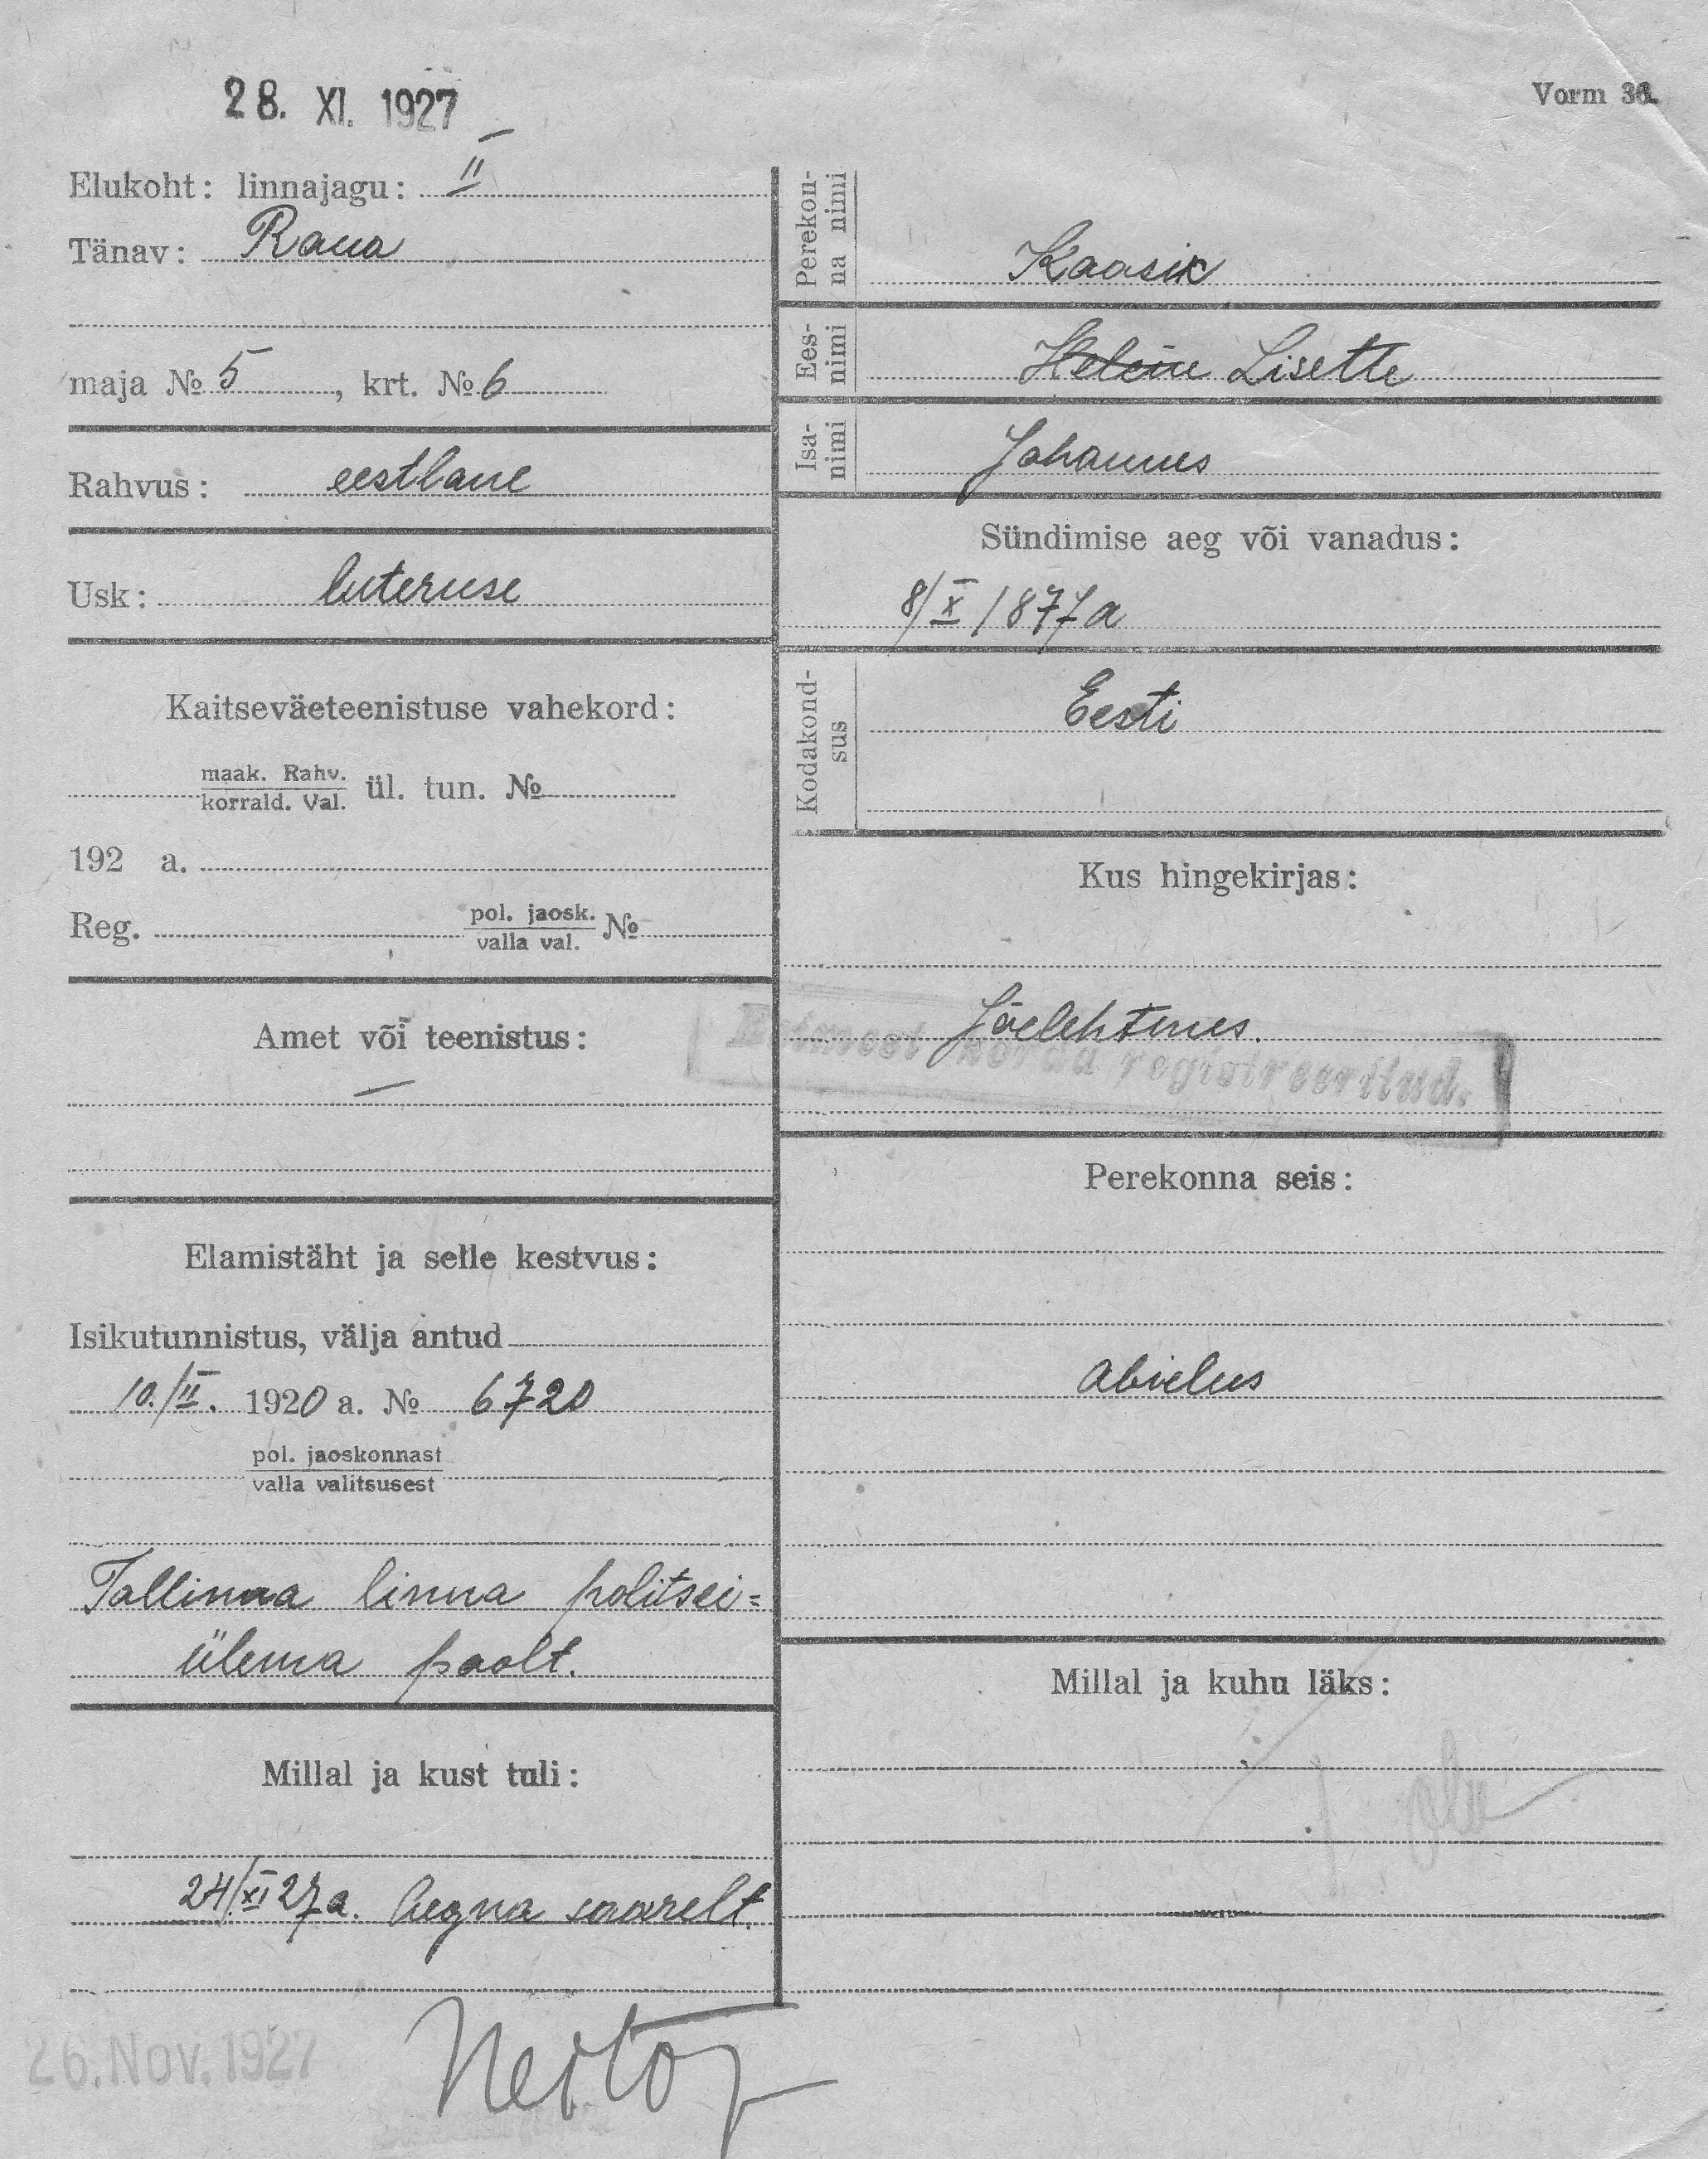 28. XI. 1927
Vorm 36.
Elukoht: linnajagu: II
Tänav: Raua
maja № 5, krt. № 6
Rahvus: eestlane
Usk: luteruse
Kaitseväeteenistuse vahekord:
maak. Rahv.
korrald. Val. ül. tun. №
192 a.
Reg. pol. jaosk.
valla val. №
Amet või teenistus:
—
Elamistäht ja selle kestvus:
Isikutunnistus, välja antud
10./II. 1920 a. № 6720
pol. jaoskonnast
valla valitsusest
Tallinna linna politsei=
ülema poolt.
Millal ja kust tuli:
24/XI 27 a. Aegna saarelt.
Perekon-
na nimi
Kaasik
Ees-
nimi
Helene Lisette
Isa-
nimi
Johannes
Sündimise aeg või vanadus:
8/X 1877 a
Kodakond-
sus
Eesti
Kus hingekirjas:
Jõelehtmes.
Esimest korda registreeritud.
Perekonna seis:
abielus
Millal ja kuhu läks:
26. Nov. 1927